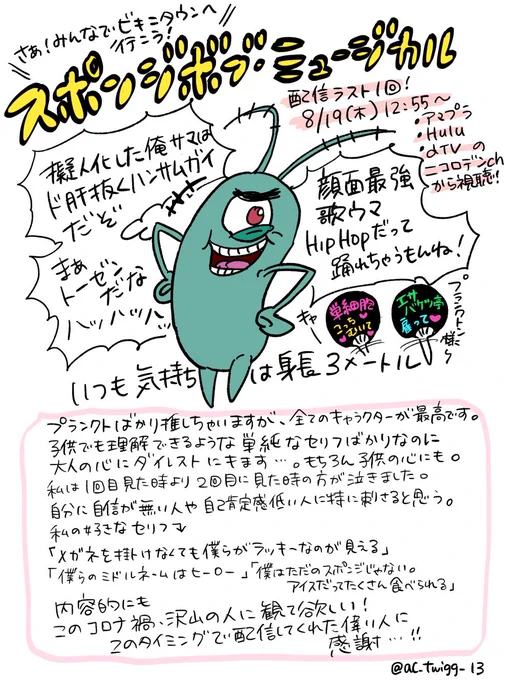 さぁ!みんなでビキニタウンへ
行こう!
スポンジボブ・ミュージカル
配信ラスト1回!
8/19(木)12:55〜
・アマプラ
・Hulu
・dTVの
ニコロデオンch
から視聴!!
擬人化した俺サマは
ド肝抜くハンサムガイ
だぞ
まぁ
トーゼン
だな
ハッハッハッ
顔面最強
歌ウマ
HipHopだって
踊れちゃうもんね!
キャー
単細胞
こっち
むいて
エサ
バケツ亭
雇って
プランクトン様〜
いつも気持ちは身長3メートル
プランクトンばかり推しちゃいますが、全てのキャラクターが最高です。
子供でも理解できるような単純なセリフばかりなのに
大人の心にダイレクトにキます…。もちろん子供の心にも。
私は1回目見た時より2回目に見た時の方が泣きました。
自分に自信が無い人や自己肯定感低い人に特に刺さると思う。
私の好きなセリフ↓
「メガネを掛けなくても僕らがラッキーなのが見える」
「僕らのミドルネームはヒーロー」「僕はただのスポンジじゃない。
アイスだってたくさん食べられる」
内容的にも
このコロナ禍、沢山の人に観て欲しい!
このタイミングで配信してくれた偉い人に
感謝…!!
@ac_twigg_13